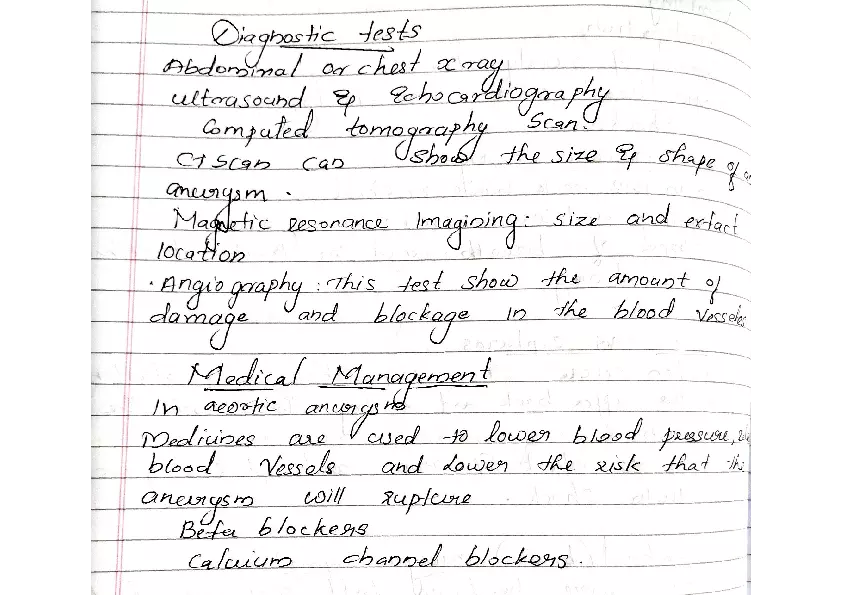 Diagnostic tests
Abdominal or chest x ray
ultrasound & Echocardiography
Computed tomography Scan.
CT Scan can show the size & shape of
aneurysm .
Magnetic resonance Imagining: size and extact
location
· Angiography : This test show the amount of
damage and blockage in the blood vessels
Medical Management
In aeortic aneurysms
Medicines are used to lower blood pressure,
blood Vessels and lower the risk that the
aneurysm will rupture
Beta blockers
Calcium channel blockers.